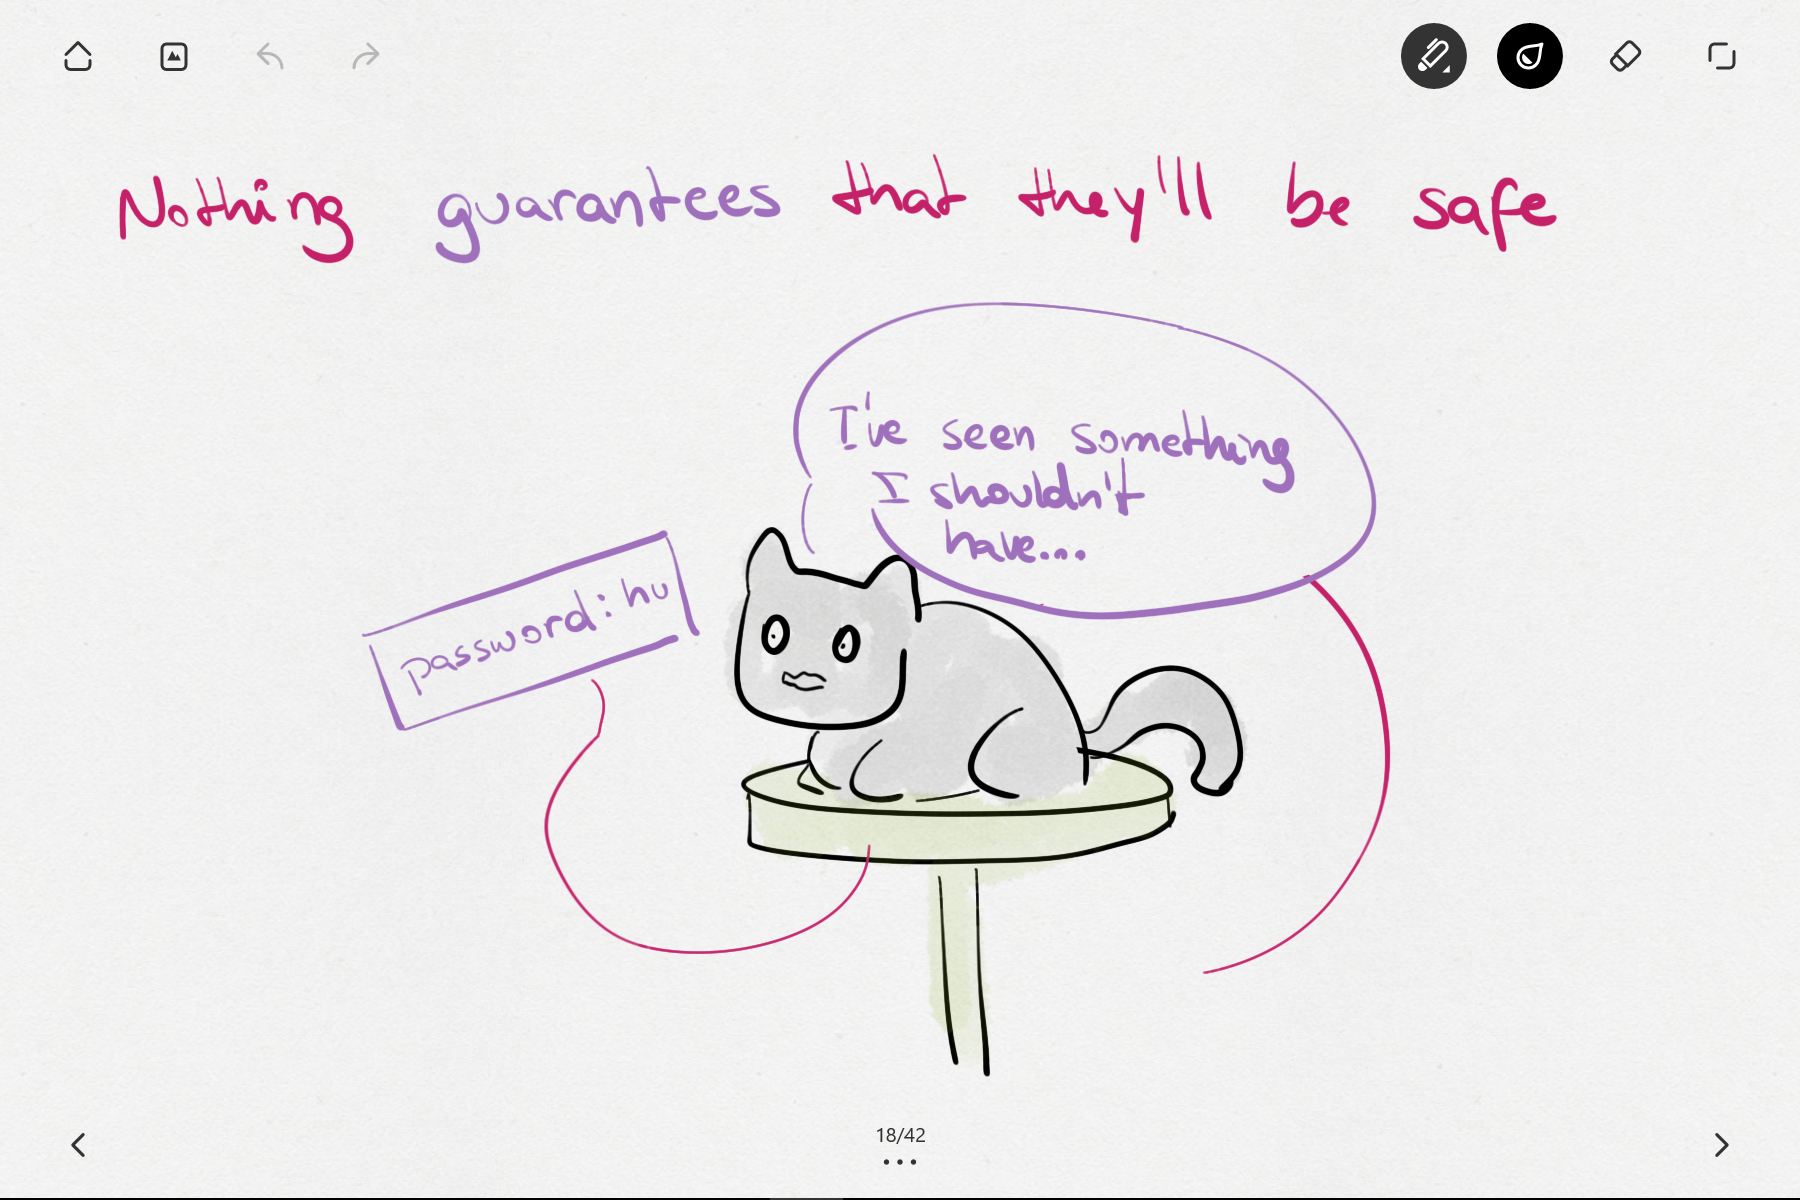 Nothing guarantees that they'll be safe
I've seen something
I shouldn't
have...
password: hu
18/42